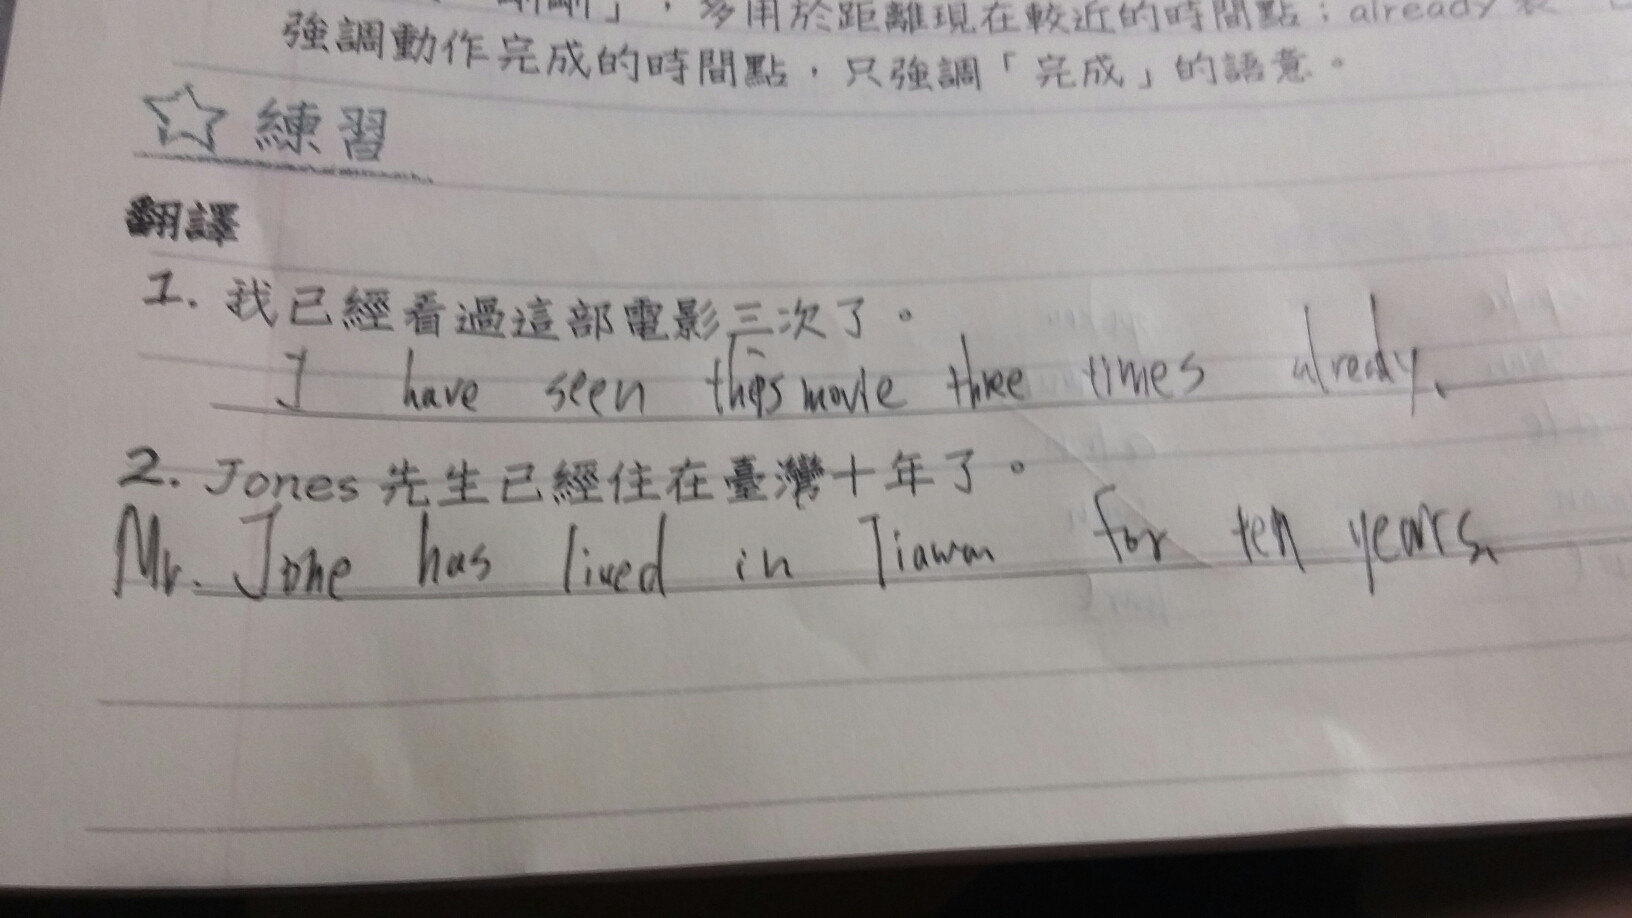 」，多用於距離現在較近的時間點；already 表
強調動作完成的時間點，只強調「完成」的語意。
☆ 練習
翻譯
1. 我已經看過這部電影三次了。
I have seen this movie three times already.
2. Jones 先生已經住在臺灣十年了。
Mr. Jone has lived in Tiawan for ten years.